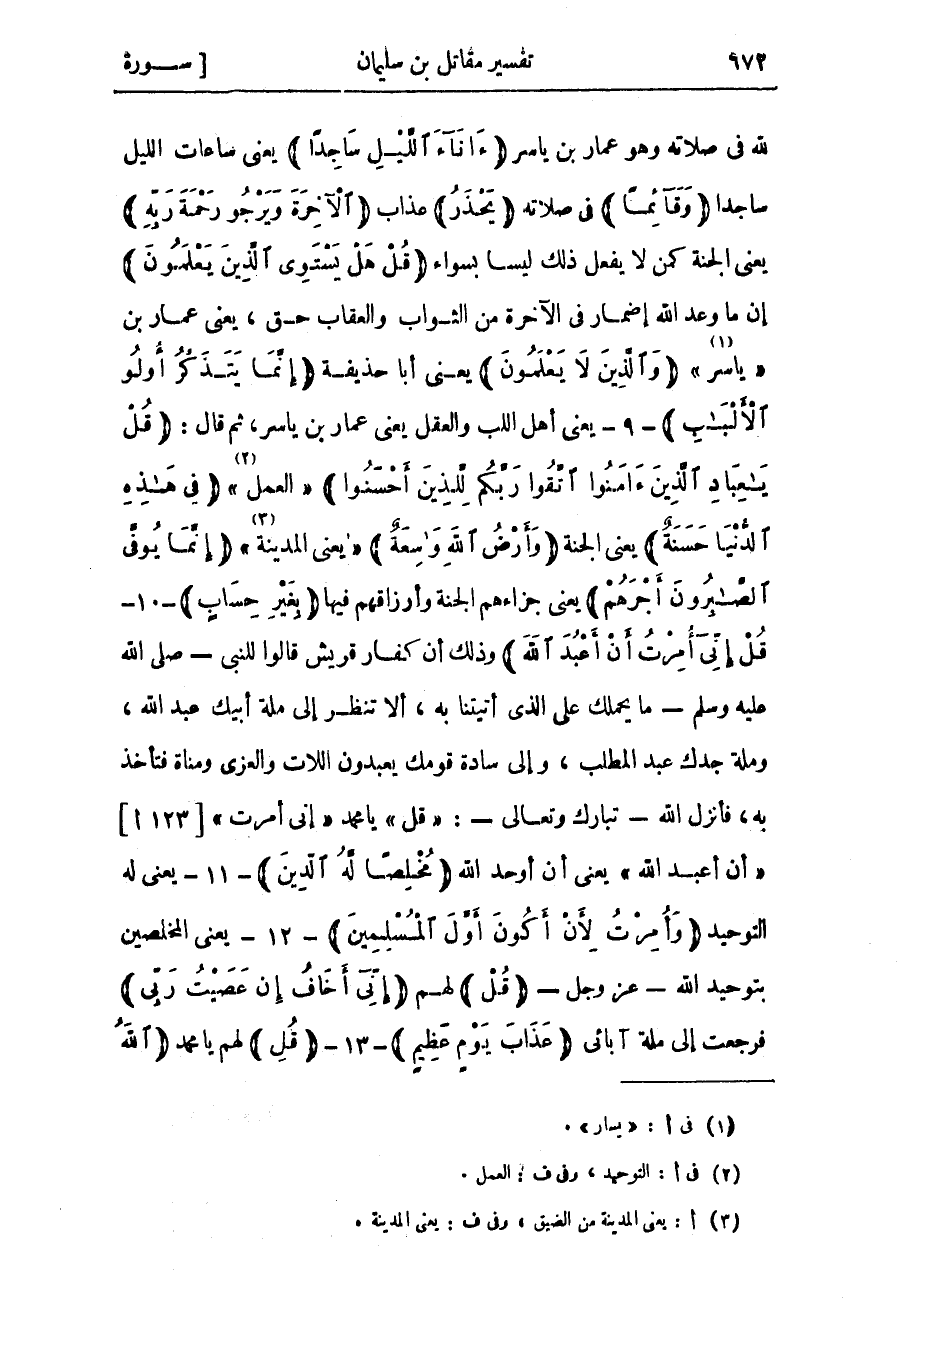 ٦٧٢ تفسير مقاتل بن سليمان [ سـورة
لله فى صلاته وهو عمار بن ياسر ( ءَانَآءَ ٱلَّيْلِ سَاجِدًا ) يعنى ساعات الليل
ساجدا ( وَقَآئِمًا ) فى صلاته ( يَحْذَرُ ) عذاب ( ٱلْآخِرَةَ وَيَرْجُو رَحْمَةَ رَبِّهِ )
يعنى الجنة كمن لا يفعل ذلك ليسا بسواء ( قُلْ هَلْ يَسْتَوِى ٱلَّذِينَ يَعْلَمُونَ )
إن ما وعد الله إضمار فى الآخرة من الثواب والعقاب حق ، يعنى عمار بن
« ياسر »(١) ( وَٱلَّذِينَ لَا يَعْلَمُونَ ) يعنى أبا حذيفة ( إِنَّمَا يَتَذَكَّرُ أُولُو
ٱلْأَلْبَـٰبِ ) - ٩ - يعنى أهل اللب والعقل يعنى عمار بن ياسر، ثم قال : ( قُلْ
يَـٰعِبَادِ ٱلَّذِينَ ءَامَنُوا ٱتَّقُوا رَبَّكُمْ لِلَّذِينَ أَحْسَنُوا ) « العمل »(٢) ( فِى هَـٰذِهِ
ٱلدُّنْيَا حَسَنَةٌ ) يعنى الجنة ( وَأَرْضُ ٱللَّهِ وَٰسِعَةٌ ) « يعنى المدينة »(٣) ( إِنَّمَا يُوَفَّى
ٱلصَّـٰبِرُونَ أَجْرَهُمْ ) يعنى جزاءهم الجنة وأرزاقهم فيها ( بِغَيْرِ حِسَابٍ ) -١٠-
قُلْ إِنِّىٓ أُمِرْتُ أَنْ أَعْبُدَ ٱللَّهَ ) وذلك أن كفار قريش قالوا للنبى — صلى الله
عليه وسلم — ما يحملك على الذى أتيتنا به ، ألا تنظر إلى ملة أبيك عبد الله ،
وملة جدك عبد المطلب ، وإلى سادة قومك يعبدون اللات والعزى ومناة فتأخذ
به، فأنزل الله — تبارك وتعالى — : « قل » يا محمد « إنى أمرت » [ ١٢٣ أ ]
« أن أعبد الله » يعنى أن أوحد الله ( مُخْلِصًا لَّهُ ٱلدِّينَ ) - ١١ - يعنى له
التوحيد ( وَأُمِرْتُ لِأَنْ أَكُونَ أَوَّلَ ٱلْمُسْلِمِينَ ) - ١٢ - يعنى المخلصين
بتوحيد الله — عز وجل — ( قُلْ ) لهم ( إِنِّىٓ أَخَافُ إِنْ عَصَيْتُ رَبِّى )
فرجعت إلى ملة آبائى ( عَذَابَ يَوْمٍ عَظِيمٍ ) -١٣- ( قُلِ ) لهم يا محمد ( ٱللَّهَ
(١) فى أ : « يسار » .
(٢) فى أ : التوحيد ، وفى ف : العمل .
(٣) أ : يعنى المدينة من الضيق ، وفى ف : يعنى المدينة .